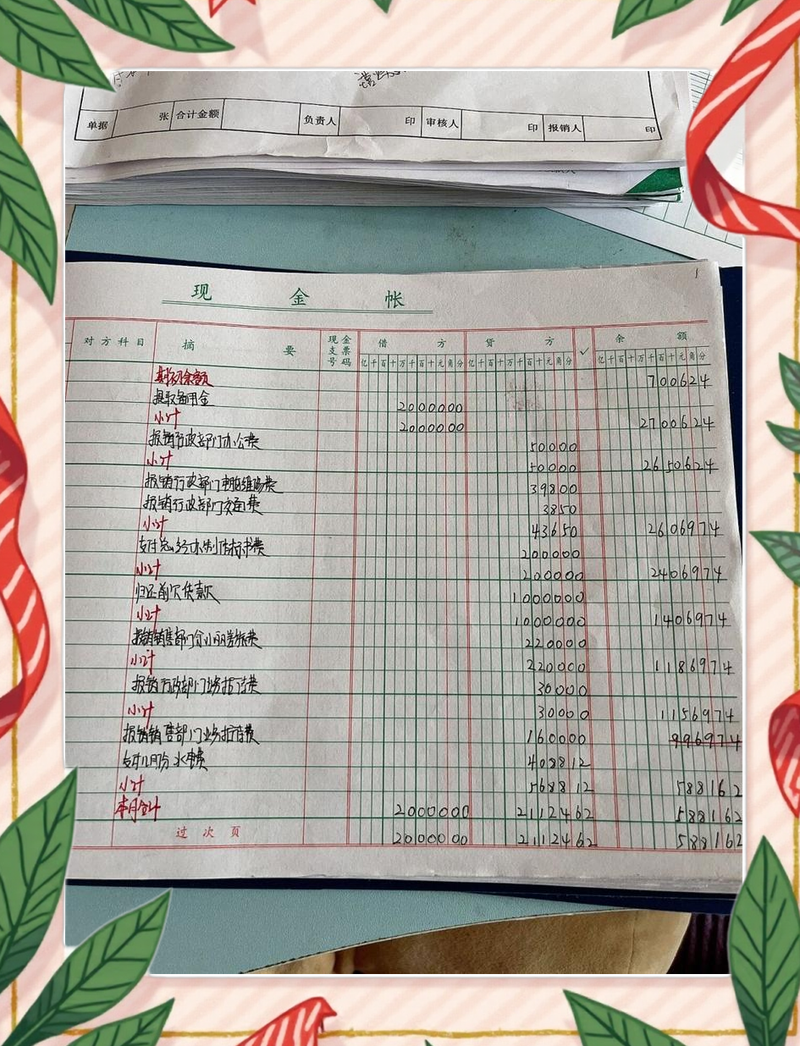 单据 张 合计金额 负责人 印 审核人 印 报销人 印
现 金 帐
对方科目 摘 要 现金支票号码 借 方 贷 方 ✓ 余 额
亿千百十万千百十元角分 亿千百十万千百十元角分 亿千百十万千百十元角分
期初余额 700624
提取备用金 2000000
小计 2000000 2700624
报销行政部门办公费 50000
小计 50000 2650624
报销行政部门 39800
报销行政部门交通费 3850
小计 43650 2606974
支付 费 200000
小计 200000 2406974
归还前欠 款 1000000
小计 1000000 1406974
报销销售部门 费 220000
小计 220000 1186974
报销行政部门业务招待费 30000
小计 30000 1156974
报销销售部门业务招待费 160000 996974
支付 月份水电费 408812
小计 568812 588162
本月合计 2000000 2112462 588162
过次页 2000000 2112462 588162